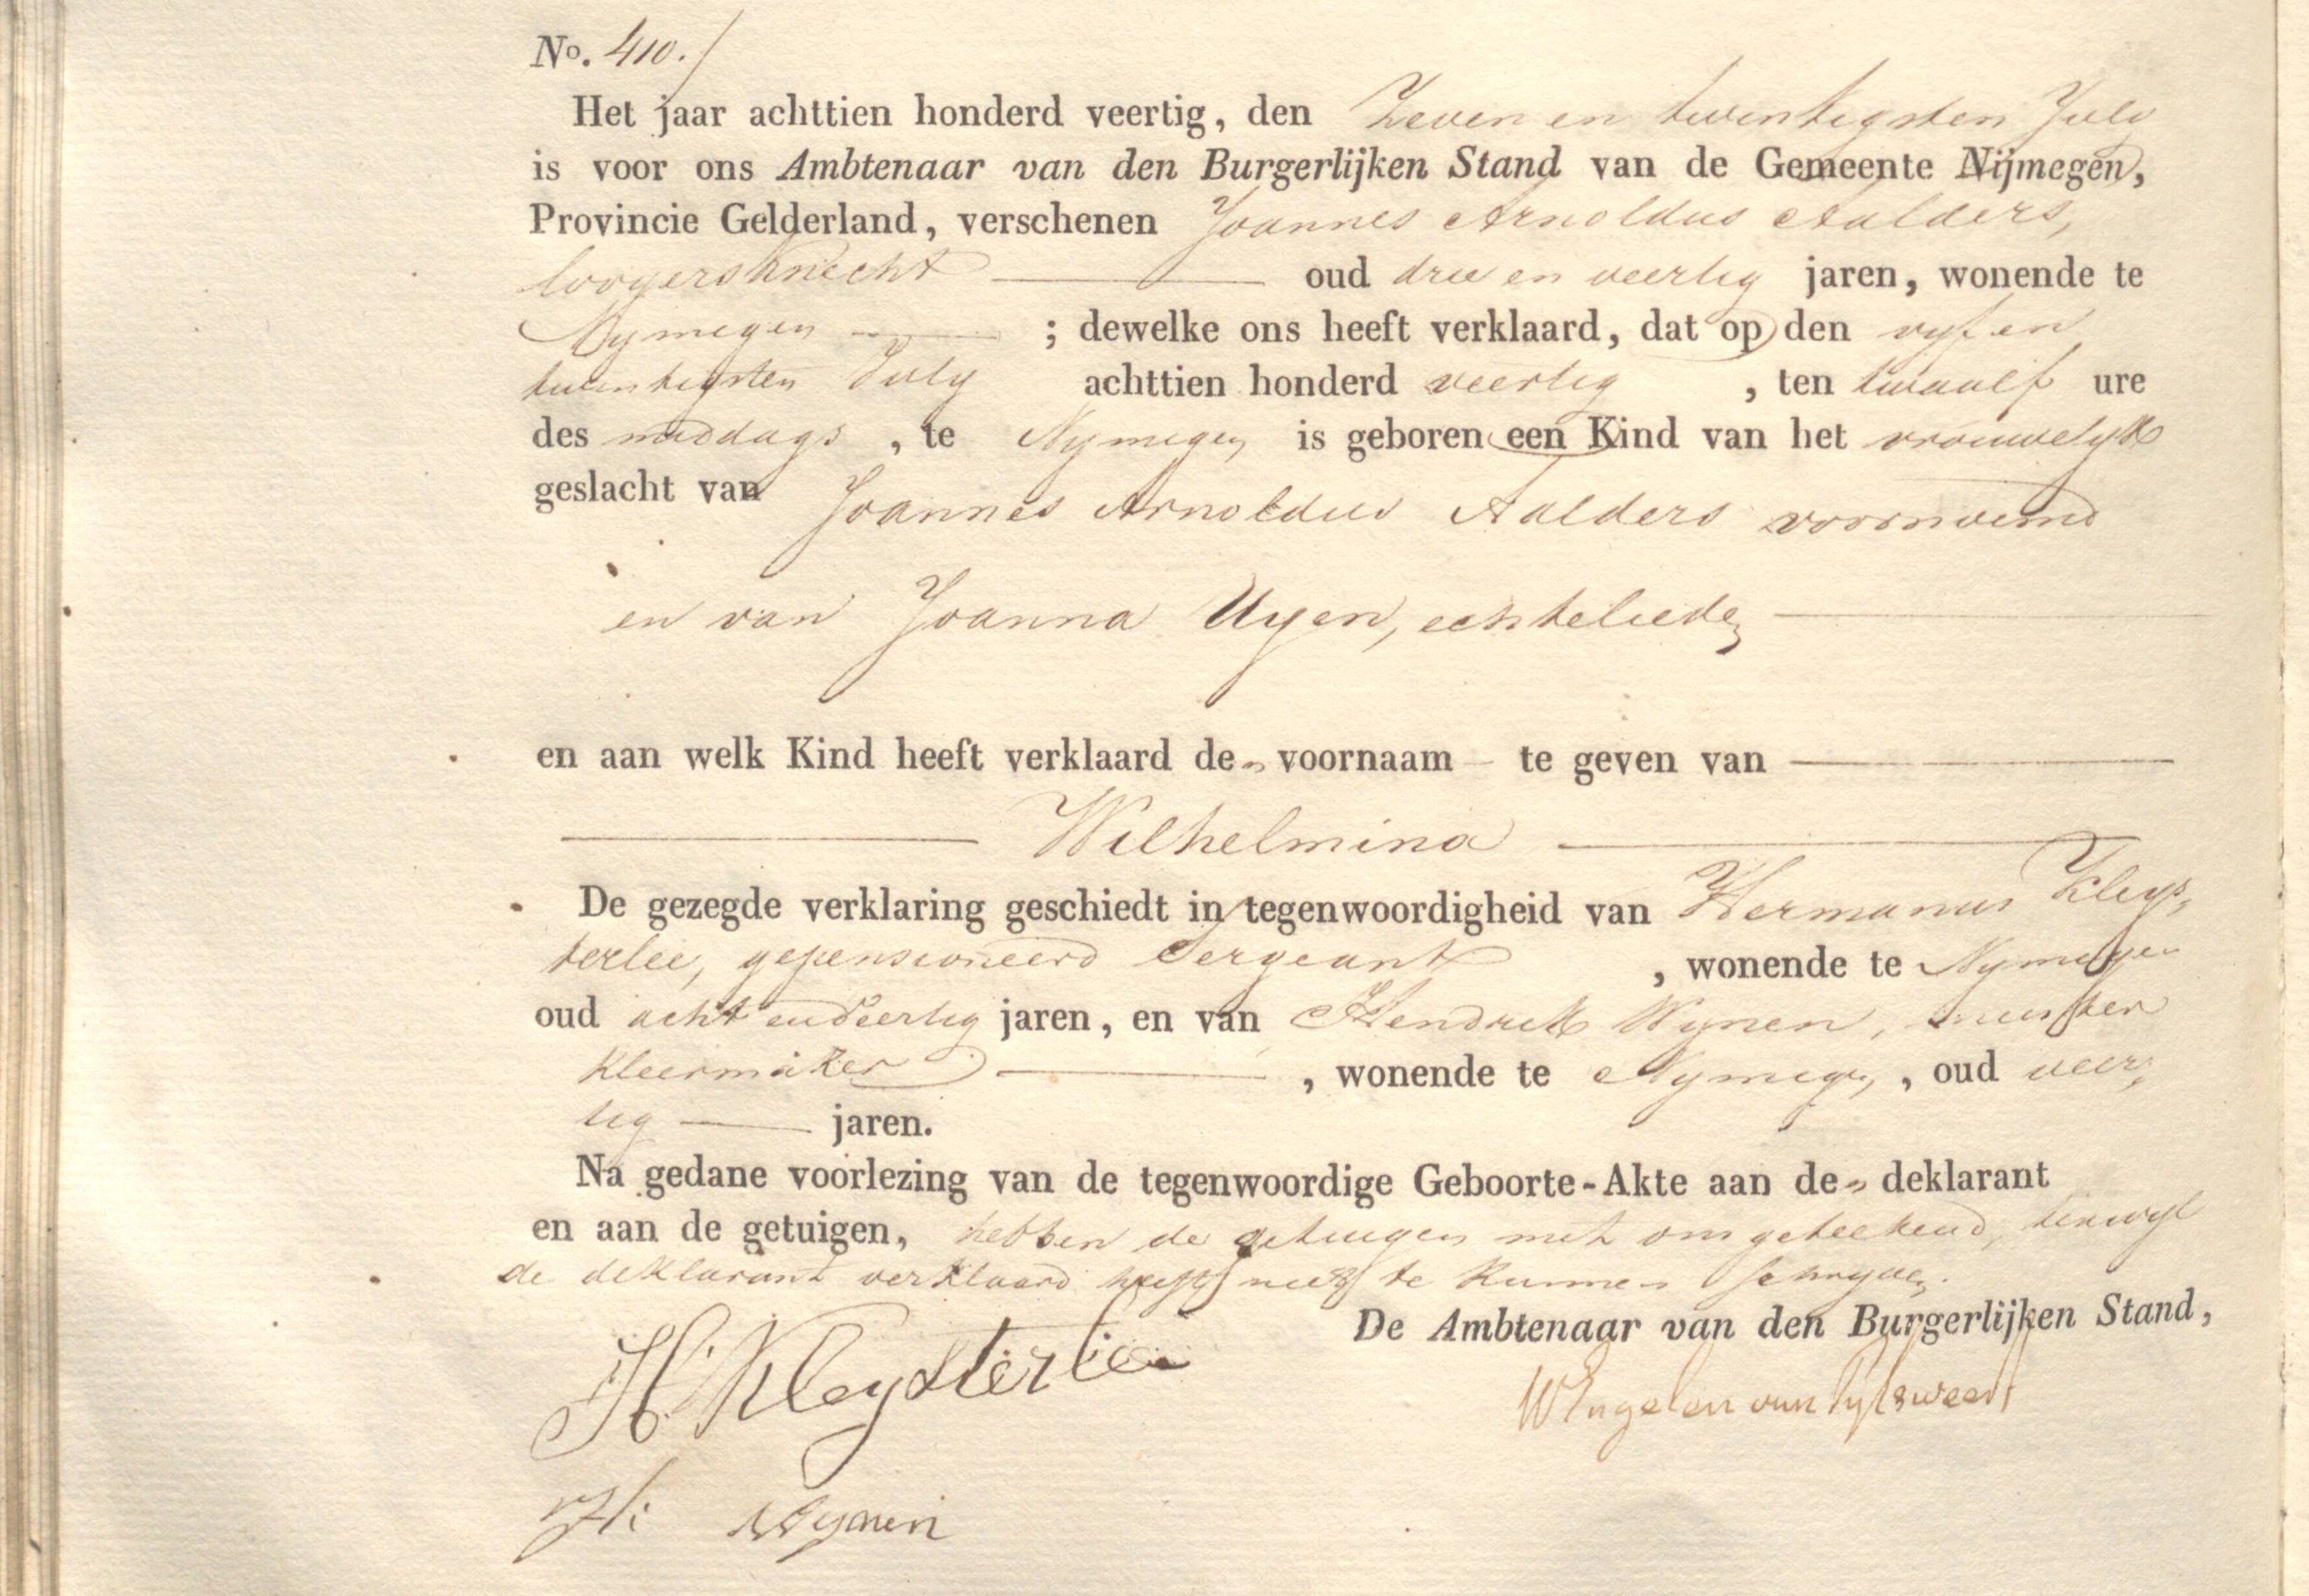 No. 410.
Het jaar achttien honderd veertig, den Zeven en twintigsten July
is voor ons Ambtenaar van den Burgerlijken Stand van de Gemeente Nijmegen,
Provincie Gelderland, verschenen Joannes Arnoldus Aalders,
looyersknecht oud drie en veertig jaren, wonende te
Nymegen ; dewelke ons heeft verklaard, dat op den vyf en
twintigsten July achttien honderd veertig , ten twaalf ure
des middags , te Nymegen is geboren een Kind van het vrouwelyk
geslacht van Joannes Arnoldus Aalders voornoemd
en van Joanna Uyen, echtelieden
en aan welk Kind heeft verklaard den voornaam te geven van
Wilhelmina
De gezegde verklaring geschiedt in tegenwoordigheid van Hermanus Kleys-
terlee, gepensioneerd Sergeant , wonende te Nymegen
oud acht en veertig jaren, en van Hendrik Wynen, meester
kleermaker , wonende te Nymegen , oud veer-
tig jaren.
Na gedane voorlezing van de tegenwoordige Geboorte-Akte aan den deklarant
en aan de getuigen, hebben de getuigen met ons geteekend, terwyl
de deklarant verklaard heeft niet te kunnen schryven.
De Ambtenaar van den Burgerlijken Stand,
H Kleysterlee
W Engelen van Pylsweert
H: Wynen